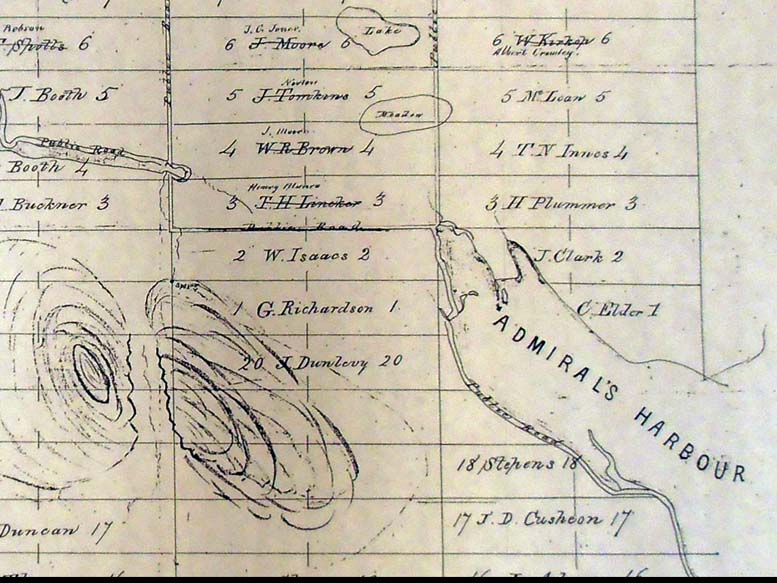 Robson
Spotts 6
J. Booth 5
Public Road
Booth 4
Buckner 3
Duncan 17
J. C. Jones
6 J. Moore 6
Lake
Norton
5 J. Tomkins 5
Meadow
4 W R Brown 4
Henry Munro
3 T. H. Lineker 3
Public Road
2 W. Isaacs 2
1 G. Richardson 1
20 J. Dunlevy 20
6 W. Kirkup 6
Albert Crowley
5 McLean 5
4 T. N. Innes 4
3 H Plummer 3
J. Clark 2
C. Elder 1
ADMIRAL'S HARBOUR
Public Road
18 Stepens 18
17 J. D. Cusheon 17